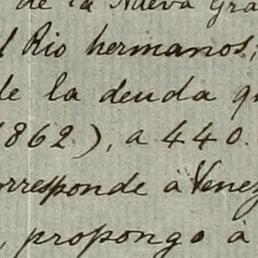 de la Nueva Gra
l Rio hermanos,
de la deuda q
1862), a 440.
orresponde á Venez
, propongo á